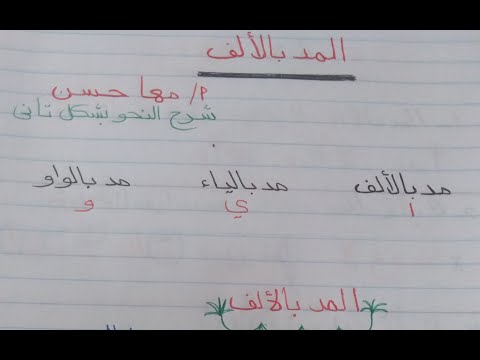 المد بالألف
م/ مها حسن
شرح النحو بشكل تانى
مد بالألف مد بالياء مد بالواو
ا ي و
المد بالألف